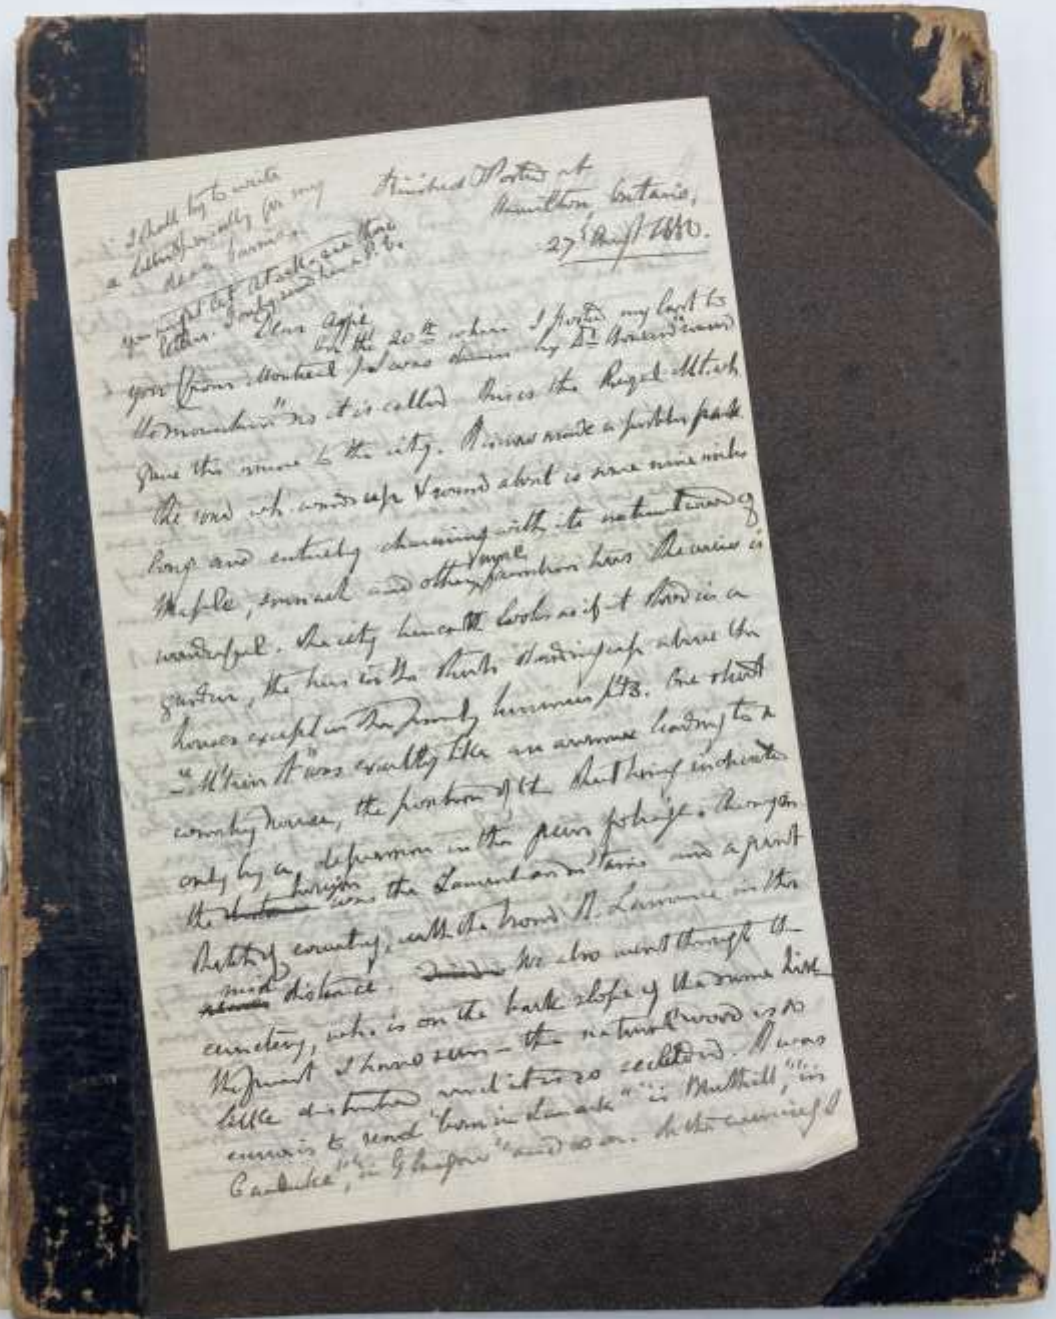 I shall try to write
a letter specially for my
dear
you might let
letters. I only send
Finished & Posted at
Hamilton Ontario,
27th Augt 1880.
Dear Aggie
On the 20th when I posted my last to
you (from Montreal) I was driven by Dr round
the mountain" as it is called. This is the Royal Mt. wh
gave the name to the city. It is now made a public park
The road wh winds up & round about is some nine miles
long and entirely charming with its natural wood of
Maple, sumach and other more familiar trees. The view is
wonderful. The city beneath looks as if it stood in a
garden, the trees in the streets standing up above the
houses except in the business pts. One street
was exactly like an avenue leading to a
country house, the position of the street being indicated
only by a depression in the green foliage. Away on
the horizon was the Laurentian and a great
stretch of country, with the broad St. Lawrence in the
mid distance. We also went through the
cemetery, wh. is on the back slope of the same hill
I have seen – the natural wood is so
little disturbed and it is so secluded. It was
curious to read "born in Lanark" "in Muthill", "in
Carluke", "in Glasgow" and so on. In the evening I